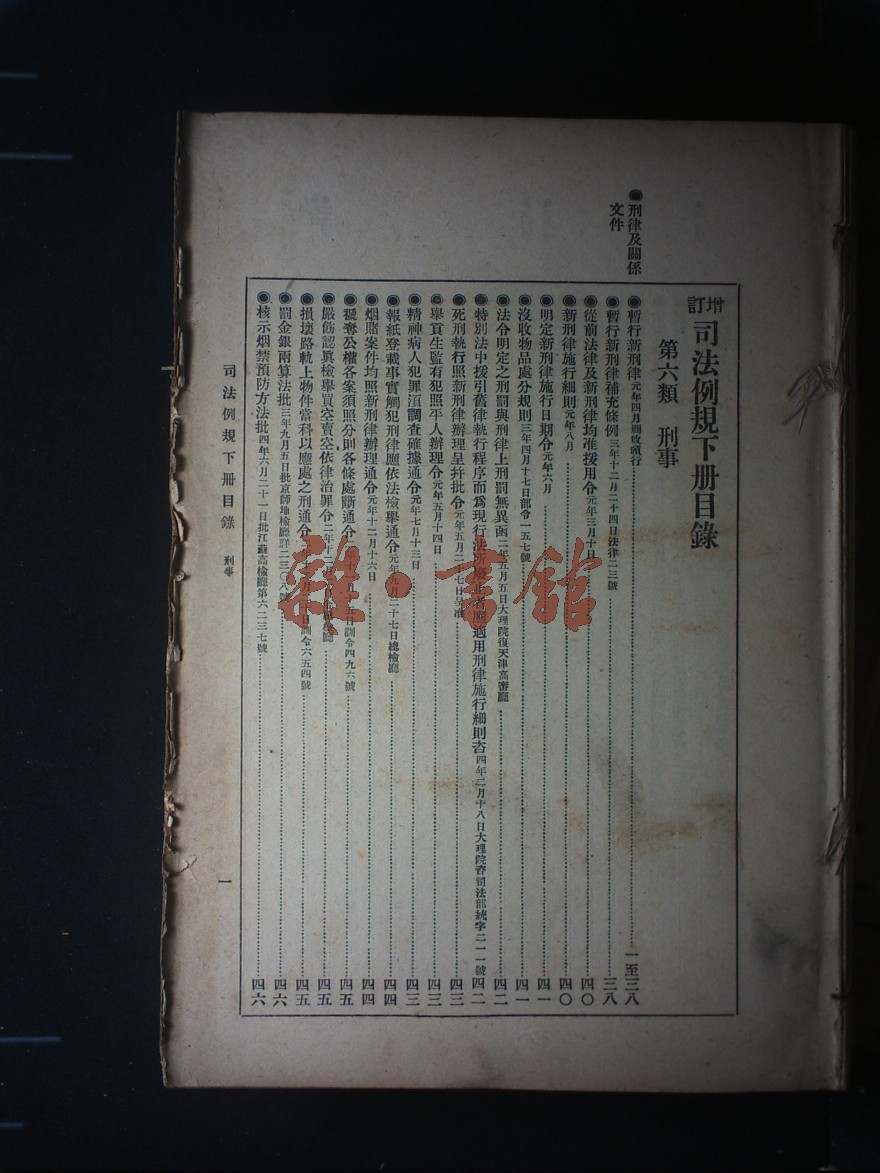 增訂司法例規下册目錄
第六類 刑事
◉刑律及關係
文件
◉暫行新刑律元年四月刪改頒行 一至三八
◉暫行新刑律補充條例三年十二月二十四日法律二三號 三八
◉從前法律及新刑律均准援用令元年三月十日 四〇
◉新刑律施行細則元年八月 四〇
◉明定新刑律施行日期令元年六月 四一
◉沒收物品處分規則三年四月十七日部令一五七號 四一
◉法令明定之刑罰與刑律上刑罰無異函二年五月五日大理院復天津高審廳 四二
◉特別法中援引舊律執行程序而爲現行法所 適用刑律施行細則咨四年二月十八日大理院咨司法部統字二一一號 四二
◉死刑執行照新刑律辦理呈幷批令元年五月二十七日呈准 四三
◉舉貢生監有犯照平人辦理令元年五月十四日 四三
◉精神病人犯罪須調查確據通令元年七月十三日 四三
◉報紙登載事實觸犯刑律應依法檢舉通令元年九月二十七日總檢廳 四四
◉烟賭案件均照新刑律辦理通令元年十二月十六日 四四
◉褫奪公權各案須照分則各條處斷通令 訓令四九六號 四五
◉嚴飭認眞檢舉買空賣空依律治罪令二年十二月 四五
◉損壞路軌上物件當科以應處之刑通令 訓令六五四號 四五
◉罰金銀兩算法批三年九月五日批京師地檢廳詳二三〇八號 四六
◉核示烟禁預防方法批四年六月二十一日批江蘇高檢廳第六二三七號 四六
司法例規下册目錄 刑事
一
雜·書館